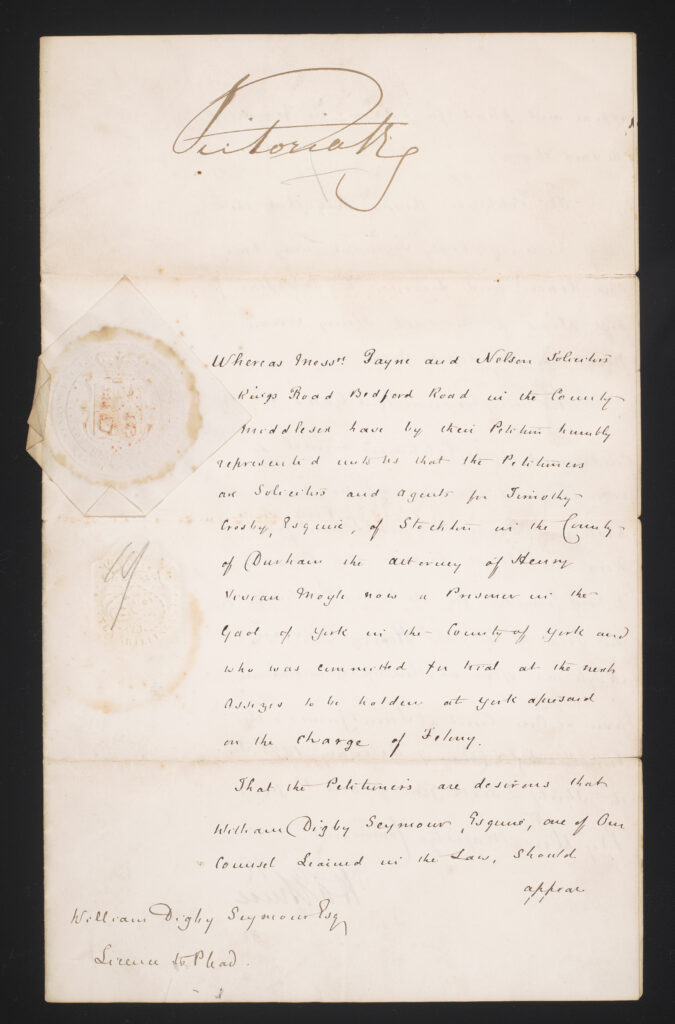 Victoria R
Whereas Mess.rs Payne and Nelson Solicitors
Kings Road Bedford Road in the County
Middlesex have by their Petition humbly
represented unto Us that the Petitioners
are Solicitors and Agents for Timothy
Crosby, Esquire, of Stockton in the County
of Durham the attorney of Henry
Vivian Moyle now a Prisoner in the
Gaol of York in the County of York and
who was committed for trial at the next
Assizes to be holden at York aforesaid
on the charge of Felony.
That the Petitioners are desirous that
William Digby Seymour, Esquire, one of Our
Counsel Learned in the Law, should
appear
William Digby Seymour Esq
Licence to Plead.